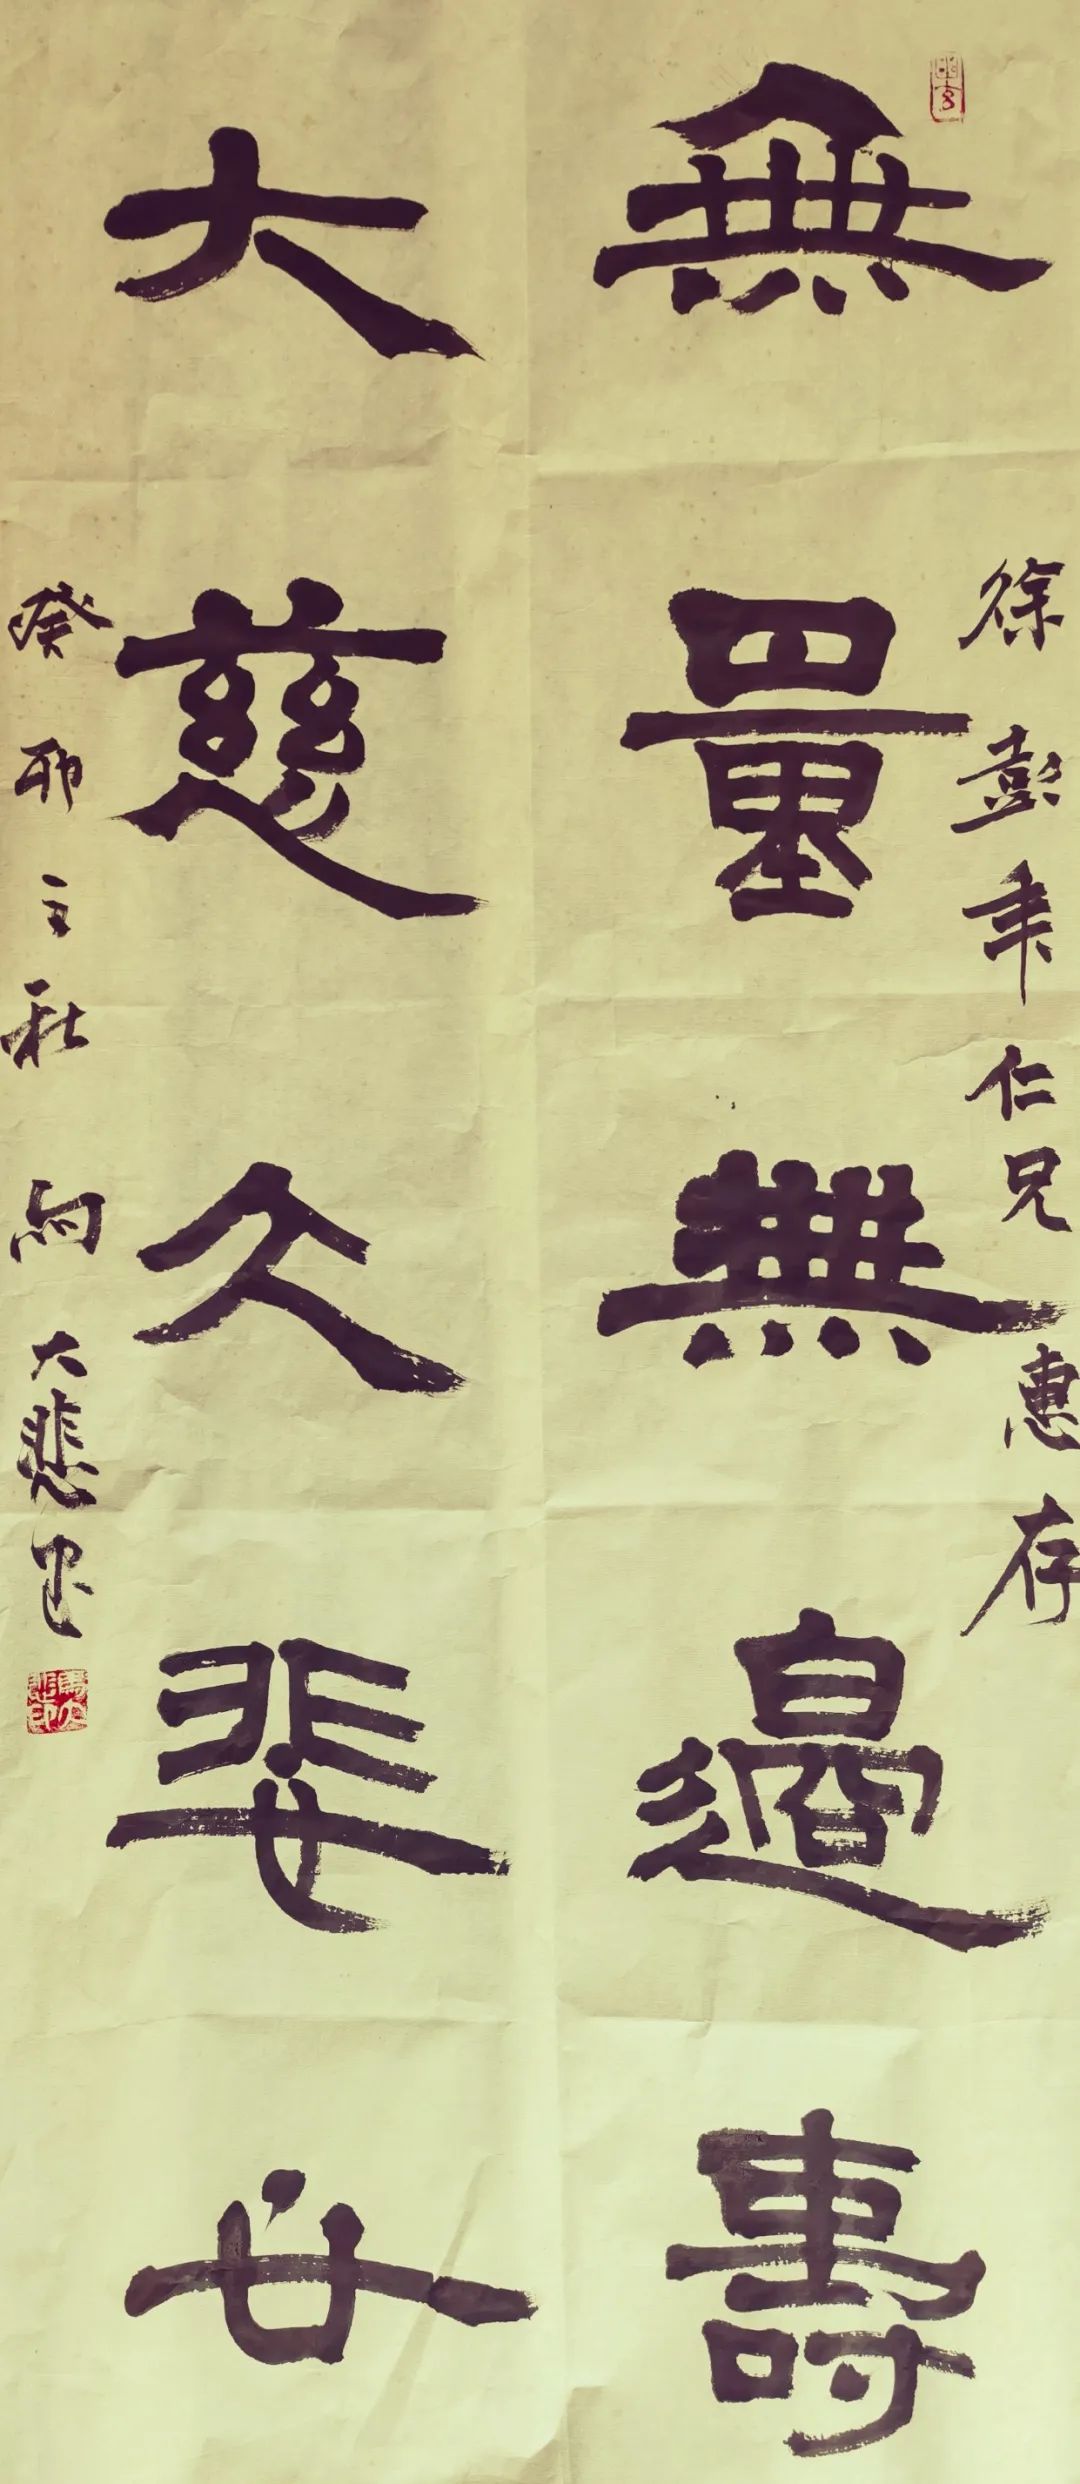 徐彭年仁兄惠存
無量無邊壽
大慈久
癸卯之秋 大悲